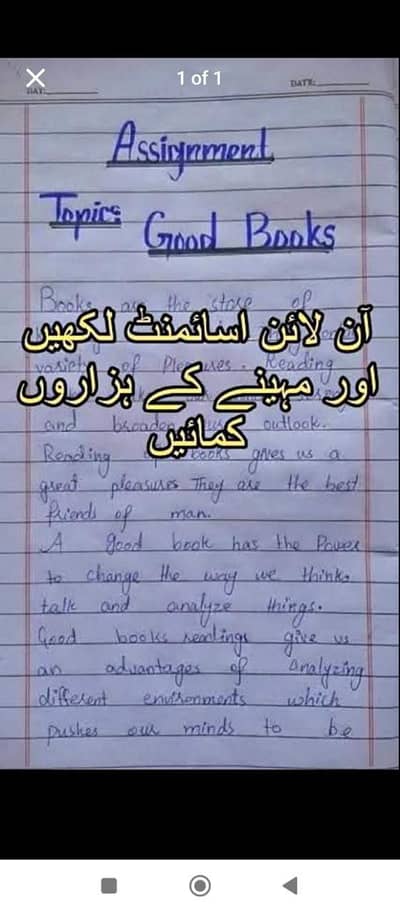 1 of 1
DAY:
DATE:
Assignment
Topic: Good Books
Books are the store of
آن لائن اسائمنٹ لکھیں
variety of Pleasures. Reading
اور مہینے کے ہزاروں
and broaden outlook.
کمائیں
Reading books gives us a
great pleasures They are the best
friends of man.
A good book has the Power
to change the way we think,
talk and analyze things.
Good books readings give us
an advantages of analyzing
different environments which
pushes our minds to be